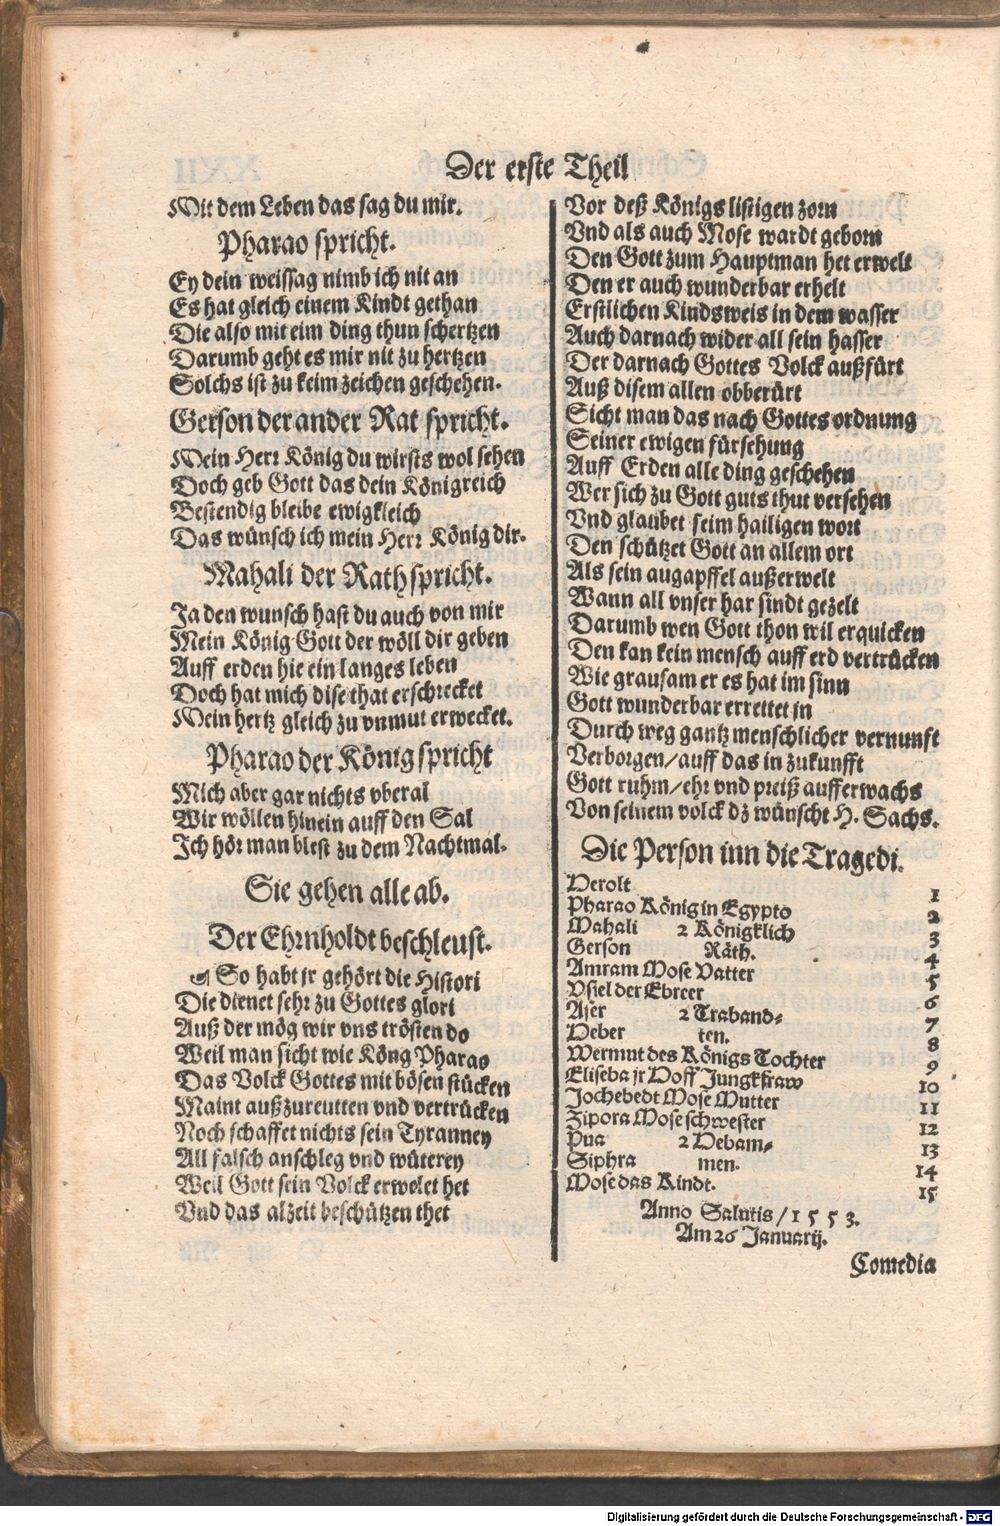 Der erste Theil
Mit dem Leben das sag du mir.
Pharao spricht.
Ey dein weissag nimb ich nit an
Es hat gleich einem Kindt gethan
Die also mit eim ding thun schertzen
Darumb geht es mir nit zu hertzen
Solchs ist zu keim zeichen geschehen.
Gerson der ander Rat spricht.
Mein Herr König du wirsts wol sehen
Doch geb Gott das dein Königreich
Bestendig bleibe ewigkleich
Das wünsch ich mein Herr König dir.
Mahali der Rath spricht.
Ja den wunsch hast du auch von mir
Mein König Gott der wöll dir geben
Auff erden hie ein langes leben
Doch hat mich dise that erschrecket
Mein hertz gleich zu vnmut erwecket.
Pharao der König spricht
Mich aber gar nichts vberal
Wir wöllen hinein auff den Sal
Ich hör man blest zu dem Nachtmal.
Sie gehen alle ab.
Der Ehrnholdt beschleust.
So habt jr gehört die Histori
Die dienet sehr zu Gottes glori
Auß der mög wir vns trösten do
Weil man sicht wie Köng Pharao
Das Volck Gottes mit bösen stücken
Maint außzureutten vnd vertrücken
Noch schaffet nichts sein Tyranney
All falsch anschleg vnd wüterey
Weil Gott sein Volck erwelet het
Vnd das alzeit beschützen thet
Vor deß Königs listigen zorn
Vnd als auch Mose wardt geborn
Den Gott zum Hauptman het erwelt
Den er auch wunderbar erhelt
Erstlichen Kindsweis in dem wasser
Auch darnach wider all sein hasser
Der darnach Gottes Volck außfürt
Auß disem allen obberürt
Sicht man das nach Gottes ordnung
Seiner ewigen fürsehung
Auff Erden alle ding geschehen
Wer sich zu Gott guts thut versehen
Vnd glaubet seim hailigen wort
Den schützet Gott an allem ort
Als sein augapffel außerwelt
Wann all vnser har sindt gezelt
Darumb wen Gott thon wil erquicken
Den kan kein mensch auff erd vertrücken
Wie grausam er es hat im sinn
Gott wunderbar errettet jn
Durch weg gantz menschlicher vernunft
Verborgen/auff das in zukunfft
Gott ruhm/ehr vnd preiß aufferwachs
Von seinem volck dz wünscht H. Sachs.
Die Person inn die Tragedi.
Herolt 1
Pharao König in Egypto 2
Mahali 2 Königklich 3
Gerson Räth. 4
Amram Mose Vatter 5
Vsiel der Ebreer 6
Aser 2 Traband- 7
Heber ten. 8
Mermut des Königs Tochter 9
Eliseba jr Hoff Jungkfraw 10
Jochebedt Mose Mutter 11
Zipora Mose schwester 12
Pua 2 Hebam- 13
Siphra men. 14
Mose das Kindt. 15
Anno Salutis/1553.
Am 26 Januarij.
Comedia
Digitalisierung gefördert durch die Deutsche Forschungsgemeinschaft - DFG